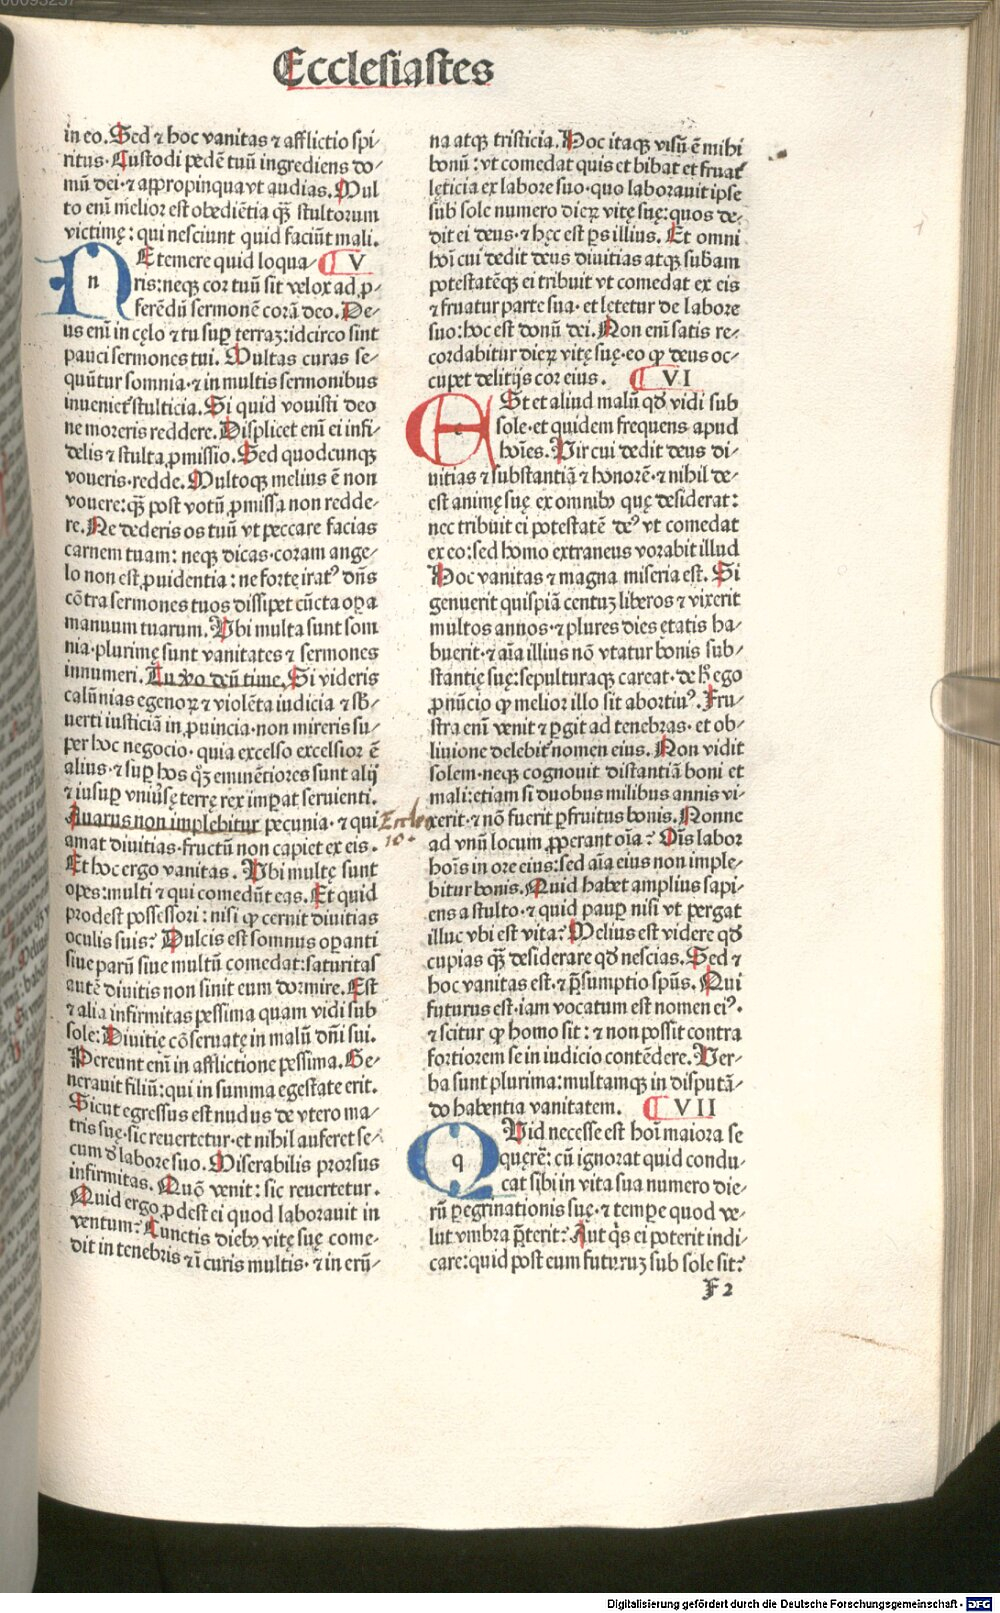 Ecclesiastes
in eo. Sed ⁊ hoc vanitas ⁊ afflictio spi⸗
ritus. Custodi pedē tuū ingrediens do⸗
mū dei·⁊ appropinqua vt audias. Mul
to enī melior est obediētia qꝫ̄ stultorum
victimę: qui nesciunt quid faciūt mali.
NEtemere quid loqua⸗ V
ris:neqꝫ cor tuū sit velox ad ꝓ⸗
ferēdū sermonē corā deo. De⸗
us enī in cęlo ⁊ tu suꝑ terraꝫ:idcirco sint
pauci sermones tui. Multas curas se⸗
quūtur somnia·⁊ in multis sermonibus
inuenietᷣ stulticia. Si quid vouisti deo
ne moreris reddere. Displicet enī ei infi⸗
delis ⁊ stulta ꝓmissio. Sed quodcunqꝫ
voueris·redde. Multoqꝫ melius ē non
vouere:qꝫ̄ post votū ꝓmissa non redde⸗
re. Ne dederis os tuū vt peccare facias
carnem tuam: neqꝫ dicas·coram ange⸗
lo non est ꝓuidentia: ne forte iratꝰ dn̄s
cōtra sermones tuos dissipet cūcta oꝑa
manuum tuarum. Vbi multa sunt som
nia·plurimę sunt vanitates ⁊ sermones
innumeri. Tu ꝟo deū time. Si videris
calūnias egenoꝝ ⁊ violēta iudicia ⁊ sb̄⸗
uerti iusticiā in ꝓuincia·non mireris su⸗
per hoc negocio· quia excelso excelsior ē
alius·⁊ suꝑ hos qꝫ̄ eminētiores sunt alij
⁊ insuꝑ vniũsę terrę rex imꝑat seruienti.
Auarus non implebitur pecunia·⁊ qui
amat diuitias·fructū non capiet ex eis.
Et hoc ergo vanitas. Vbi multę sunt
opes:multi ⁊ qui comedūt eas. Et quid
prodest possessori: nisi ꝙ cernit diuitias
oculis suis? Dulcis est somnus oꝑanti
siue parū siue multū comedat:saturitas
autē diuitis non sinit eum dormire. Est
⁊ alia infirmitas pessima quam vidi sub
sole: Diuitię cōseruatę in malū dn̄i sui.
Pereunt enī in afflictione pessima. Ge⸗
nerauit filiū:qui in summa egestate erit.
Sicut egressus est nudus de vtero ma⸗
tris suę·sic reuertetur·et nihil auferet se⸗
cum ð labore suo. Miserabilis prorsus
infirmitas. Quō venit: sic reuertetur.
Quid ergo ꝓdest ei quod laborauit in
ventum? Cunctis diebꝰ vitę suę come⸗
dit in tenebris ⁊ ī curis multis·⁊ in erū⸗
Eccles
10·
na atqꝫ tristicia. Hoc itaqꝫ visū ē mihi
bonū: vt comedat quis et bibat et fruatᷣ
lęticia ex labore suo·quo laborauit ipse
sub sole numero dieꝝ vitę suę:quos de⸗
dit ei deus·⁊ hęc est ꝑs illius. Et omni
hoī cui dedit deus diuitias atqꝫ subam
potestatēqꝫ ei tribuit vt comedat ex eis
⁊ fruatur parte sua·et lętetur de labore
suo:hoc est donū dei. Non enī satis re⸗
cordabitur dieꝝ vitę suę·eo ꝙ deus oc⸗
cupet delitijs cor eius. VI
ESt et aliud malū qd̄ vidi sub
sole·et quidem frequens apud
hoīes. Vir cui dedit deus di⸗
uitias ⁊ substantiā ⁊ honorē·⁊ nihil de⸗
est animę suę ex omnibꝰ quę desiderat:
nec tribuit ei potestatē deꝰ vt comedat
ex eo:sed homo extraneus vorabit illud
Hoc vanitas ⁊ magna miseria est. Si
genuerit quispiā centuꝫ liberos ⁊ vixerit
multos annos·⁊ plures dies ętatis ha⸗
buerit·⁊ aīa illius nō vtatur bonis sub⸗
stantię suę:sepulturaqꝫ careat·de h̄ ego
ꝓnūcio ꝙ melior illo sit abortiuꝰ. Fru⸗
stra enī venit ⁊ ꝑgit ad tenebras·et ob⸗
liuione delebitᷣ nomen eius. Non vidit
solem·neqꝫ cognouit distantiā boni et
mali:etiam si duobus milibus annis vi⸗
xerit·⁊ nō fuerit ꝑfruitus bonis. Nonne
ad vnū locum ꝓꝑerant oīa? Oīs labor
hoīs in ore eius:sed aīa eius non imple⸗
bitur bonis. Quid habet amplius sapi⸗
ens a stulto·⁊ quid pauꝑ nisi vt pergat
illuc vbi est vita? Melius est videre qd̄
cupias qꝫ̄ desiderare qd̄ nescias. Sed ⁊
hoc vanitas est·⁊ p̄sumptio spūs. Qui
futurus est·iam vocatum est nomen eiꝰ.
⁊ scitur ꝙ homo sit: ⁊ non possit contra
fortiorem se in iudicio contēdere. Ver⸗
ba sunt plurima:multamqꝫ in disputā⸗
do habentia vanitatem. VII
QVid necesse est hoī maiora se
quęrē: cū ignorat quid condu⸗
cat sibi in vita sua numero die⸗
rū ꝑegrinationis suę·⁊ temꝑe quod ve⸗
lut vmbra p̄terit? Aut qͥs ei poterit indi⸗
care:quid post eum futuruꝫ sub sole sit?
F 2
Digitalisierung gefördert durch die Deutsche Forschungsgemeinschaft · DFG